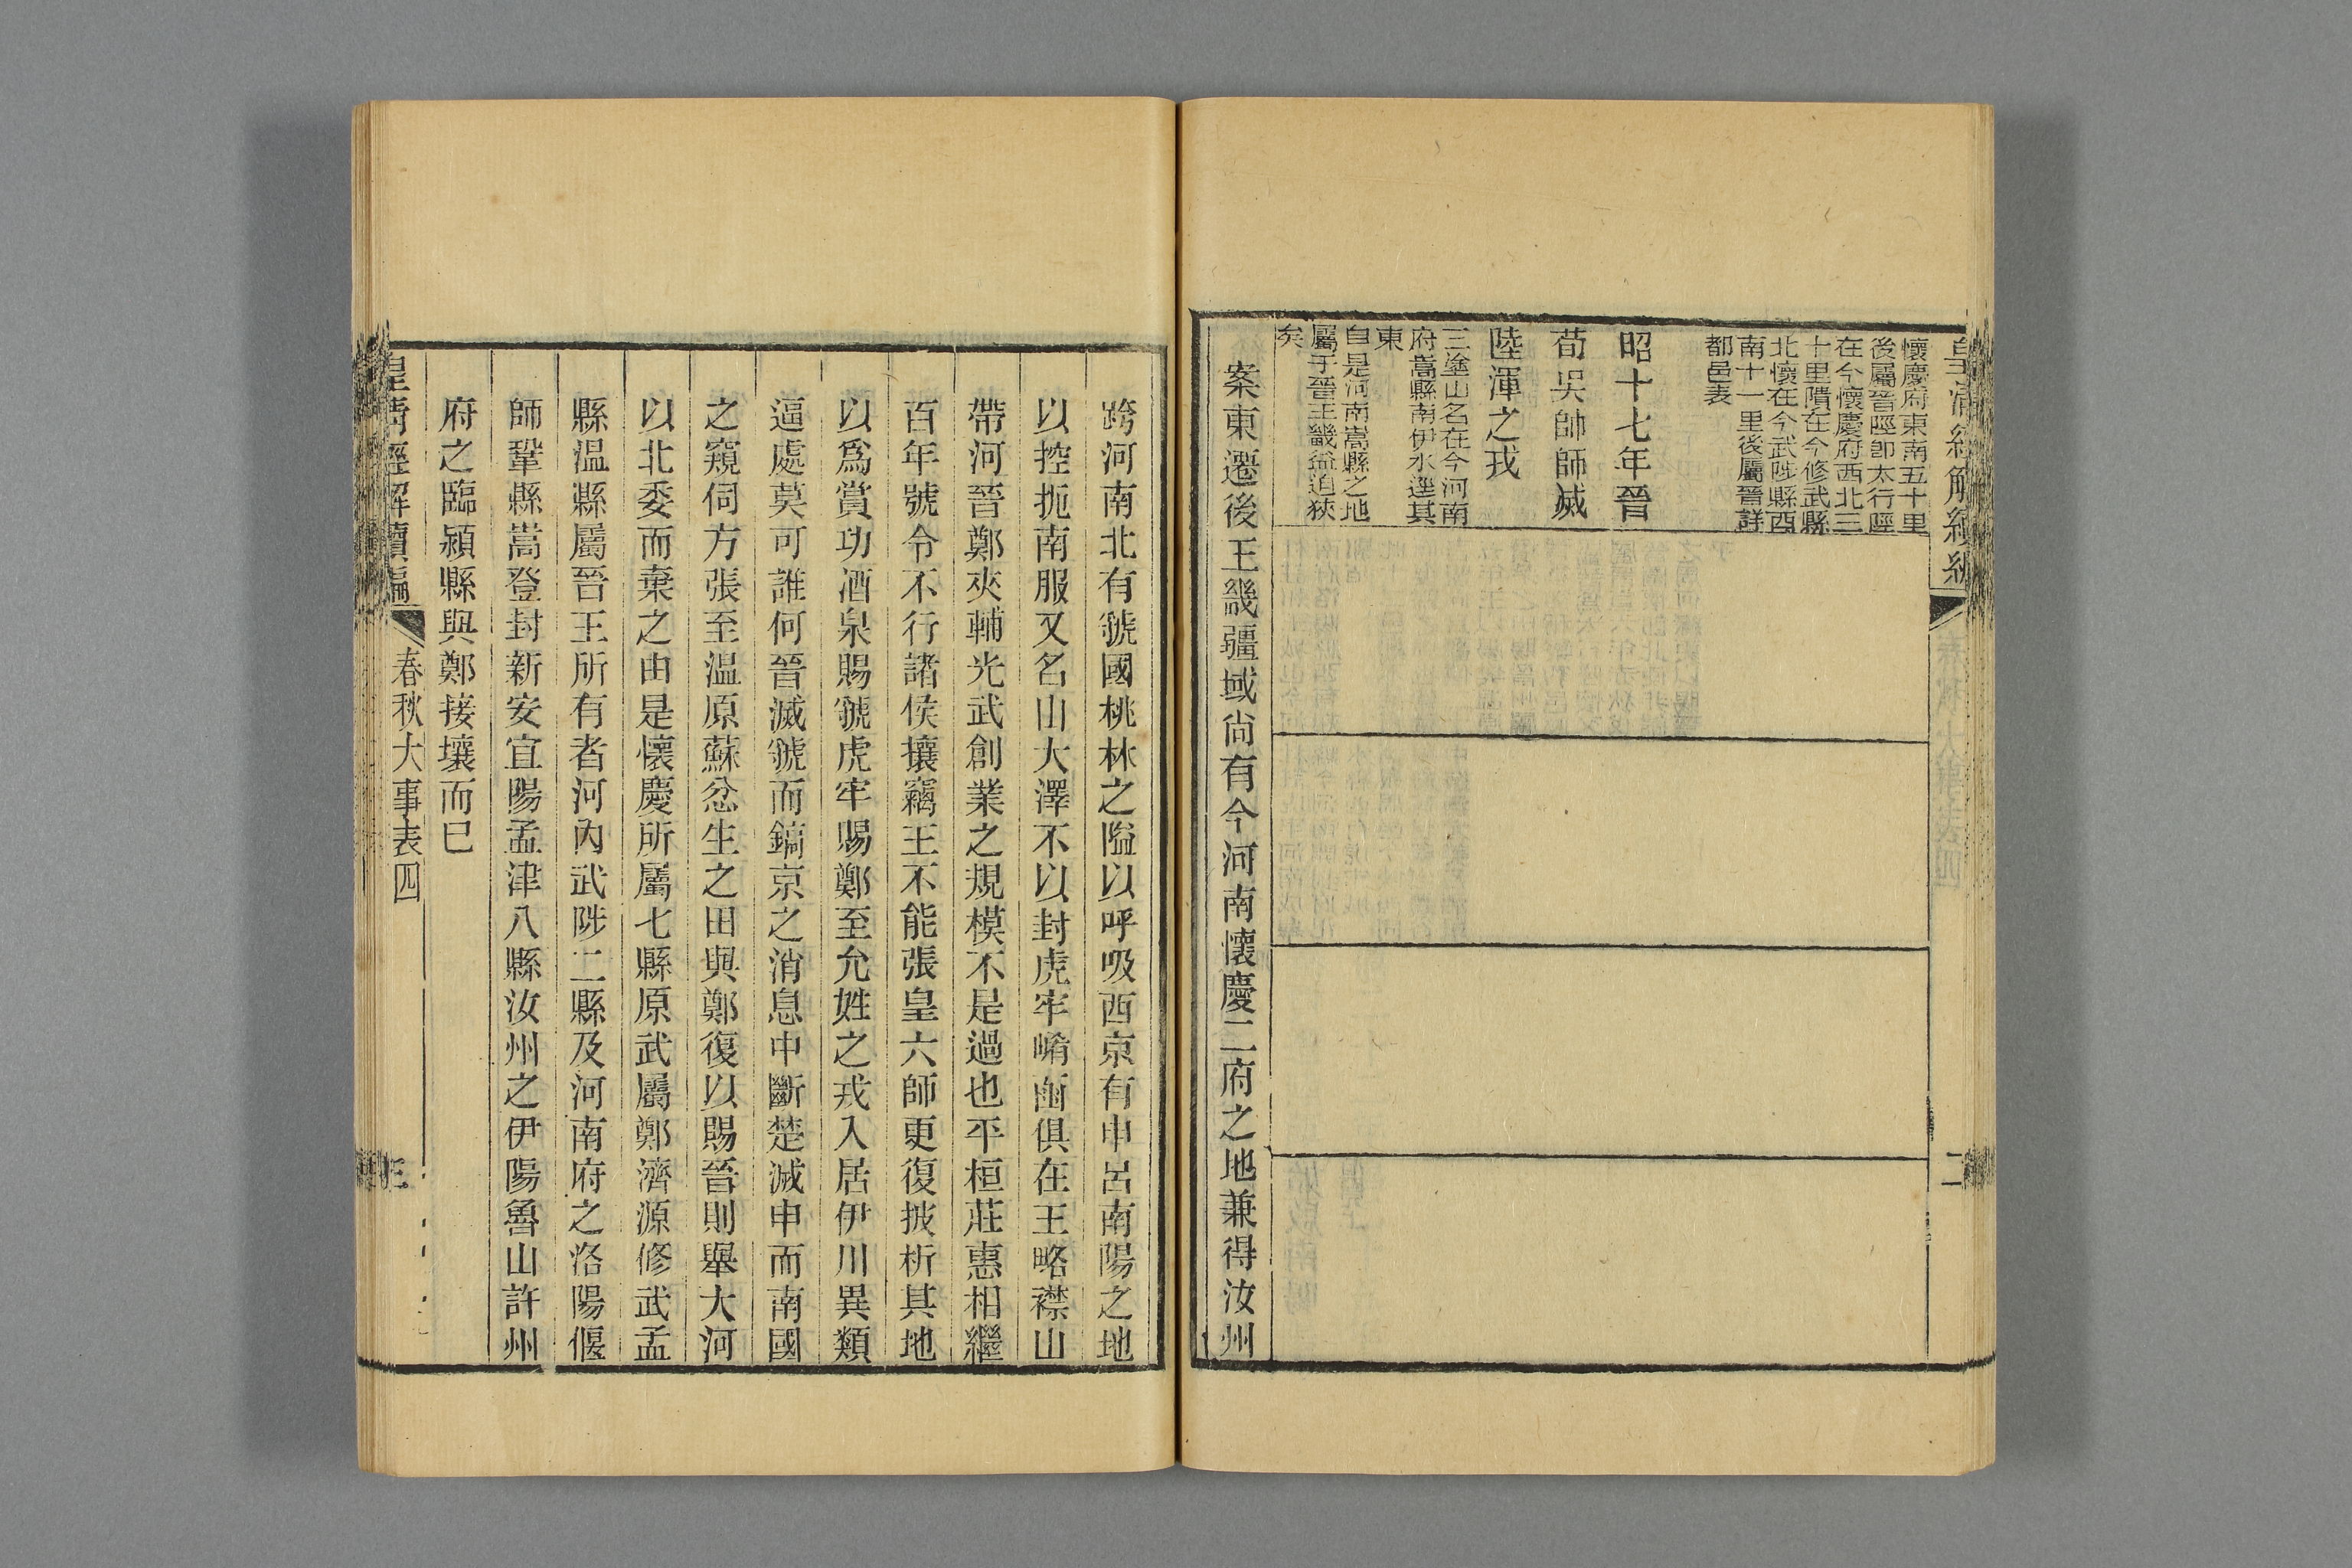 皇清經解續編
懷慶府東南五十里
後屬晉陘卽太行陘
在今懷慶府西北三
十里隤在今修武縣
北懷在今武陟縣西
南十一里後屬晉詳
都邑表
昭十七年晉
荀吳帥師滅
陸渾之戎
三塗山名在今河南
府嵩縣南伊水逕其
東
自是河南嵩縣之地
屬于晉王畿益迫狹
矣
案東遷後王畿疆域尙有今河南懷慶二府之地兼得汝州
二
跨河南北有虢國桃林之隘以呼吸西京有申呂南陽之地
以控扼南服又名山大澤不以封虎牢崤函俱在王略襟山
帶河晉鄭夾輔光武創業之規模不是過也平桓莊惠相繼
百年號令不行諸侯攘竊王不能張皇六師更復披析其地
以爲賞功酒泉賜虢虎牢賜鄭至允姓之戎入居伊川異類
逼處莫可誰何晉滅虢而鎬京之消息中斷楚滅申而南國
之窺伺方張至溫原蘇忿生之田與鄭復以賜晉則舉大河
以北委而棄之由是懷慶所屬七縣原武屬鄭濟源修武孟
縣溫縣屬晉王所有者河內武陟二縣及河南府之洛陽偃
師鞏縣嵩登封新安宜陽孟津八縣汝州之伊陽魯山許州
府之臨潁縣與鄭接壤而已
皇淸經解續編
春秋大事表四
三